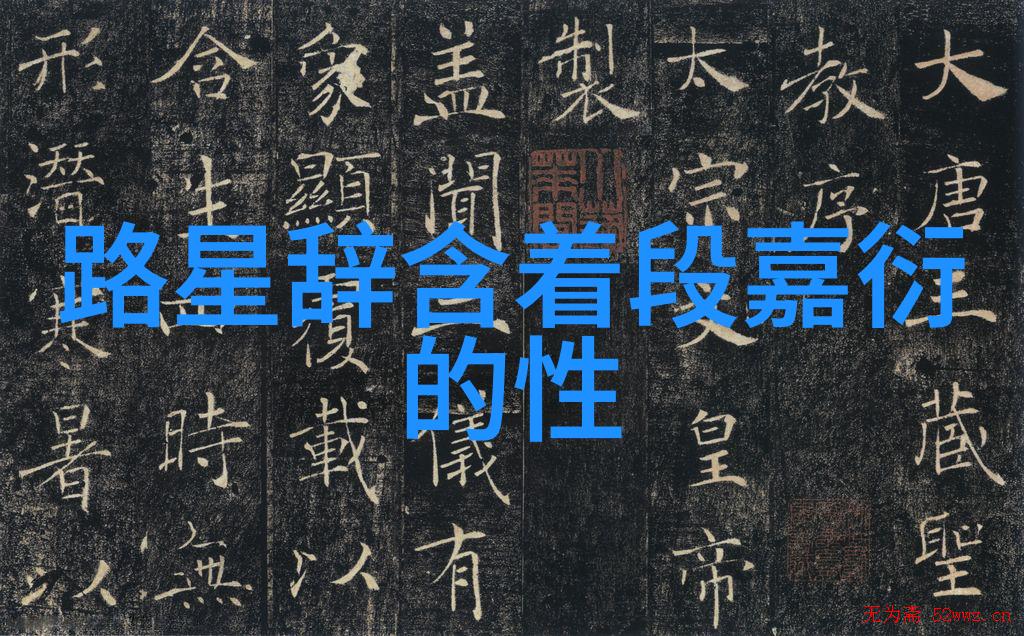 路星辞含着段嘉衍
的性
大唐三藏聖
教序
太宗文皇帝
製
盖聞二儀有
象顯覆載以
含生四時無
形潛寒暑以
无为斋 52wwz.cn